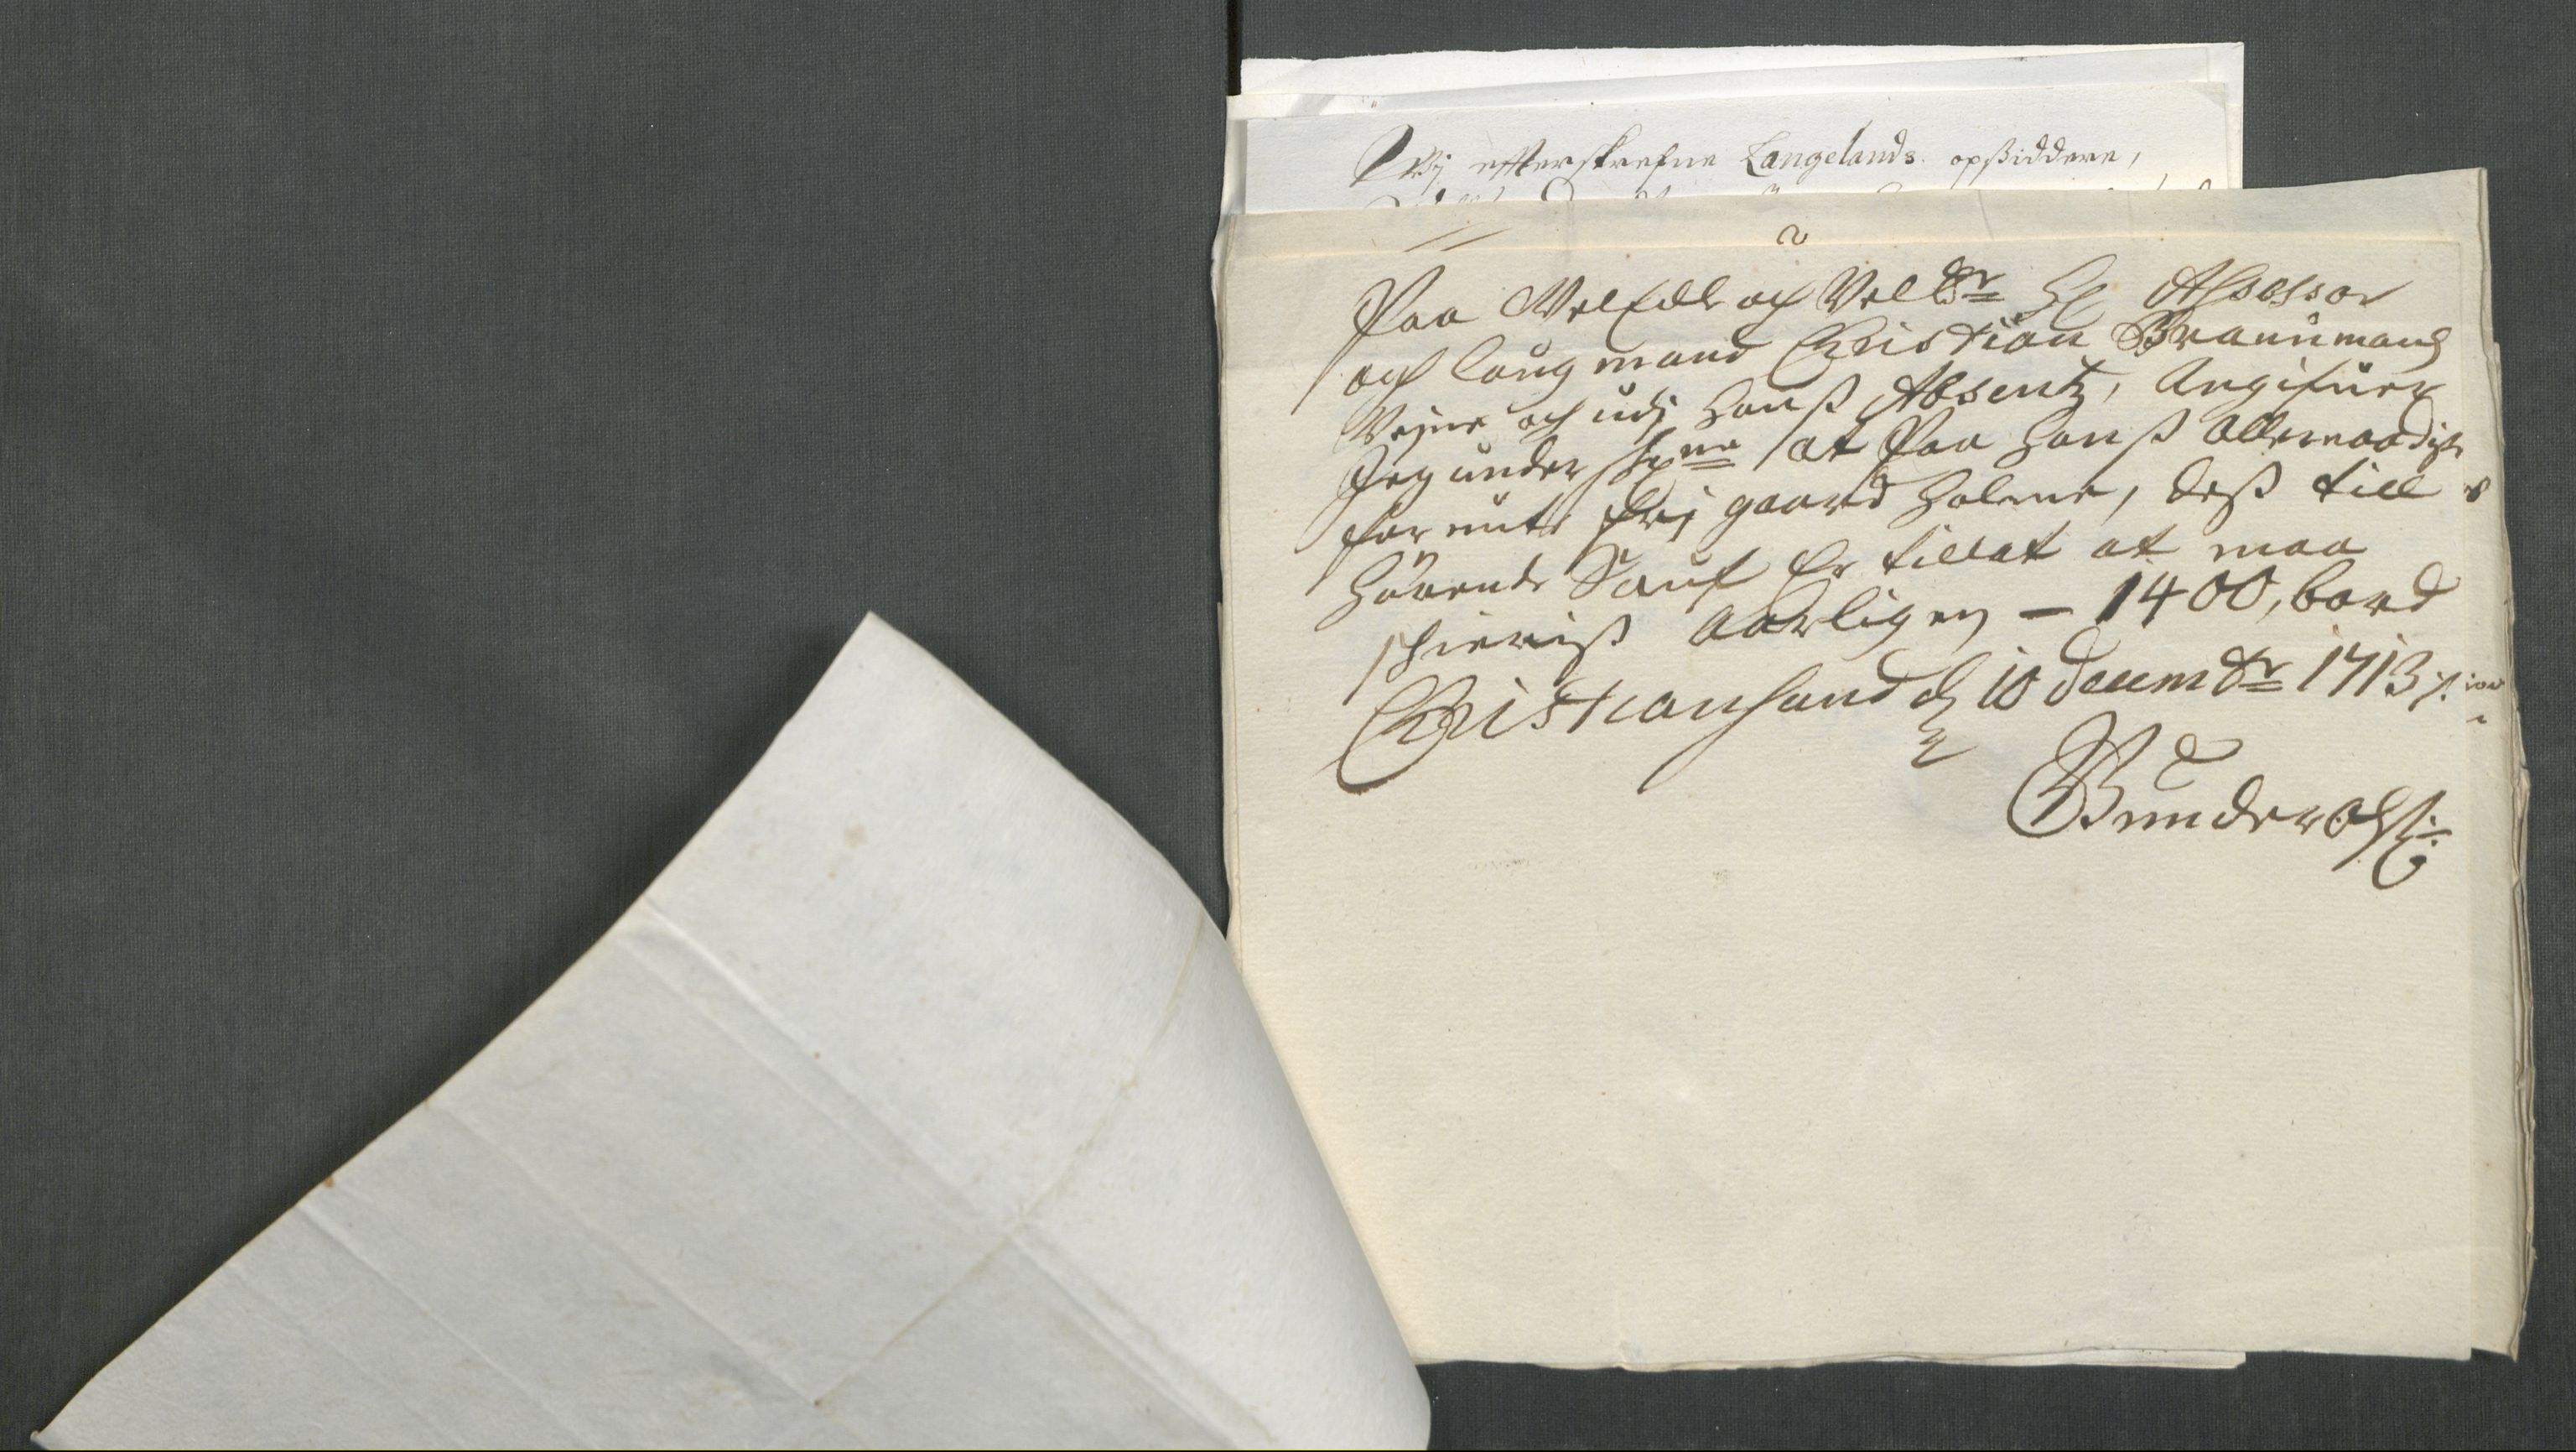 Wij efterskrefne Langelands opsiddere,
2
Paa WelEdle og Velbr Hr Assessor
og laugmand Christian Braunmands
Vejne og udj hans Absentz, Angifuer
Jeg underskrne at paa hans allernaadigste
forunte frj gaard Holme, des till
hörende Saug Er tillat at maa
skieris aarligen - 1400, bord
Christiansand d 10 decembr 1713